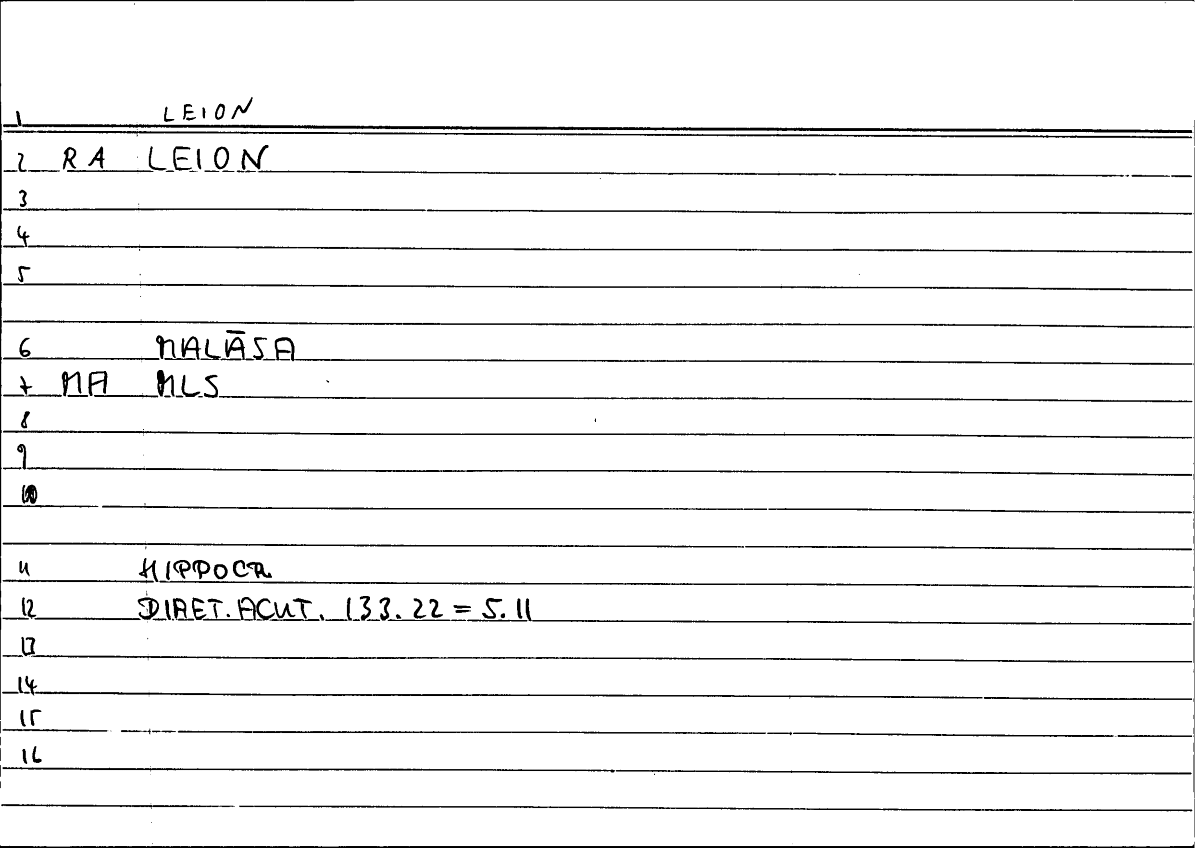 1 LEION
2 RA LEION
3
4
5
6 MALĀSA
7 MA MLS
8
9
10
11 HIPPOCR
12 DIAET.ACUT. 133.22 = 5.11
13
14
15
16